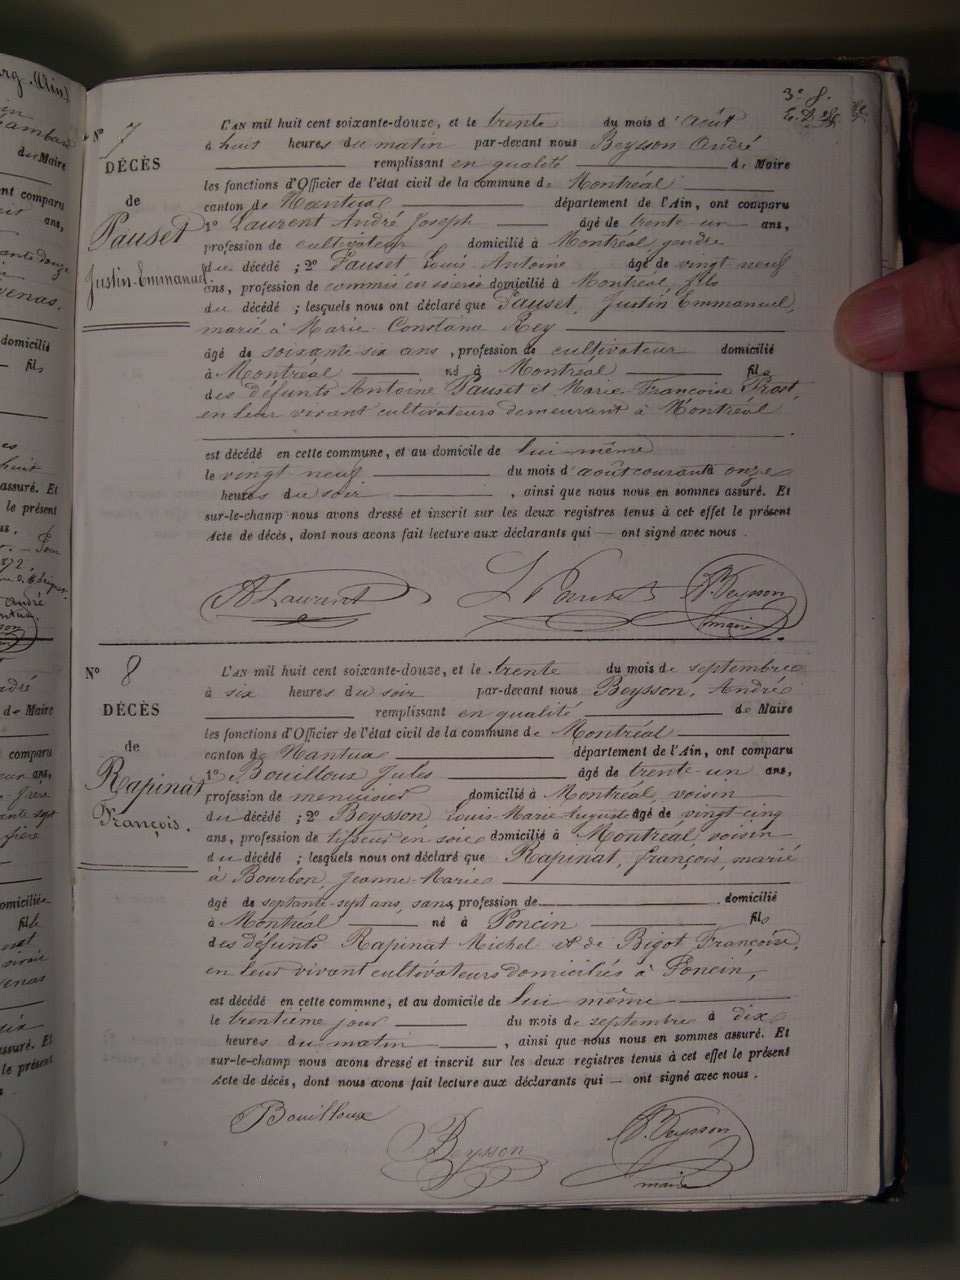 3e f.
N° 7
DÉCÈS
de
Pauset
Justin-Emmanuel
L'AN mil huit cent soixante-douze, et le trente du mois d'août
à huit heures du matin par-devant nous Beysson André
remplissant en qualité de Maire
les fonctions d'Officier de l'état civil de la commune de Montréal
canton de Nantua département de l'Ain, ont comparu
1° Laurent André Joseph âgé de trente un ans,
profession de cultivateur domicilié à Montréal gendre
du décédé ; 2° Pauset Louis Antoine âgé de vingt neuf
ans, profession de commis en domicilié à Montréal, fils
du décédé ; lesquels nous ont déclaré que Pauset, Justin Emmanuel,
marié à Marie Constana Rey
âgé de soixante six ans, profession de cultivateur domicilié
à Montréal né à Montréal fils
des défunts Antoine Pauset et Marie-Françoise Prost,
en leur vivant cultivateurs demeurant à Montréal
est décédé en cette commune, et au domicile de lui même
le vingt neuf du mois d'août courant à onze
heures du soir, ainsi que nous nous en sommes assuré. Et
sur-le-champ nous avons dressé et inscrit sur les deux registres tenus à cet effet le présent
Acte de décès, dont nous avons fait lecture aux déclarants qui — ont signé avec nous.
A Laurent L Pauset A. Beysson
maire
N° 8
DÉCÈS
de
Rapinat
François.
L'AN mil huit cent soixante-douze, et le trente du mois de septembre
à six heures du soir par-devant nous Beysson, André
remplissant en qualité de Maire
les fonctions d'Officier de l'état civil de la commune de Montréal
canton de Nantua département de l'Ain, ont comparu
1° Bouilloux Jules âgé de trente-un ans,
profession de menuisier domicilié à Montréal, voisin
du décédé ; 2° Beysson, Louis-Marie Auguste âgé de vingt cinq
ans, profession de tisseur en soie domicilié à Montréal, voisin
du décédé ; lesquels nous ont déclaré que Rapinat, François, marié
à Bourbon, Jeanne-Marie
âgé de septante-sept ans, sans profession de domicilié
à Montréal né à Poncin fils
des défunts Rapinat Michel et de Bigot Françoise,
en leur vivant cultivateurs domiciliés à Poncin,
est décédé en cette commune, et au domicile de lui même
le trentième jour du mois de septembre à dix
heures du matin, ainsi que nous nous en sommes assuré. Et
sur-le-champ nous avons dressé et inscrit sur les deux registres tenus à cet effet le présent
Acte de décès, dont nous avons fait lecture aux déclarants qui — ont signé avec nous.
Bouilloux
Beysson A. Beysson
maire